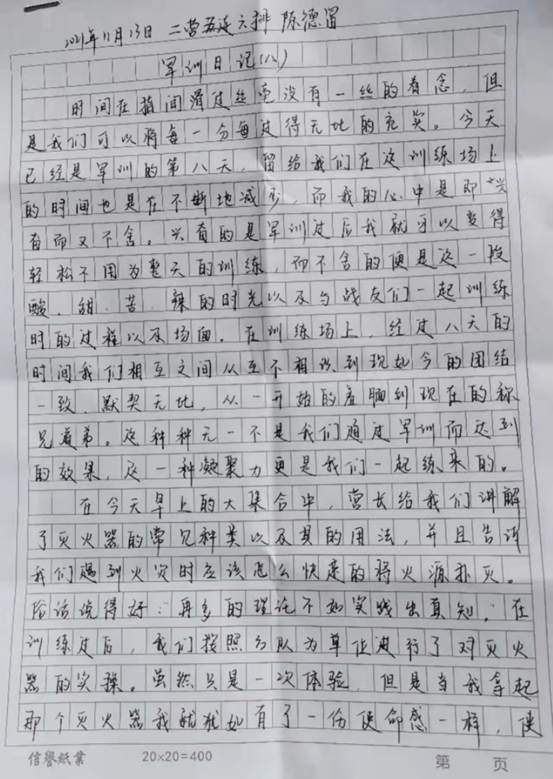 2021年11月13日 二营五连六排 陈德富
军训日记(八)
时间在指间滑过丝毫没有一丝的眷念,但
是我们可以将每一分每过得无比的充实。今天
已经是军训的第八天,留给我们在这训练场上
的时间也是在不断地减少,而我的心中是即兴
奋而又不舍。兴奋的是军训过后我就可以变得
轻松不用为整天的训练,而不舍的便是这一段
酸、甜、苦、辣的时光以及与战友们一起训练
时的过程以及场面。在训练场上,经过八天的
时间我们相互之间从互不相识到现如今的团结
一致、默契无比,从一开始的羞腼到现在的称
兄道弟。这种种无一不是我们通过军训而达到
的效果,这一种凝聚力更是我们一起练来的。
在今天早上的大集合中,营长给我们讲解
了灭火器的常见种类以及其的用法,并且告诉
我们遇到火灾时应该怎么快速的将火源扑灭。
俗话说得好:再多的理论不如实践出真知。在
训练过后,我们按照分队为单位进行了对灭火
器的实操。虽然只是一次体验,但是当我拿起
那个灭火器我就犹如有了一份使命感一样,使
信誉纸业 20×20=400 第 页